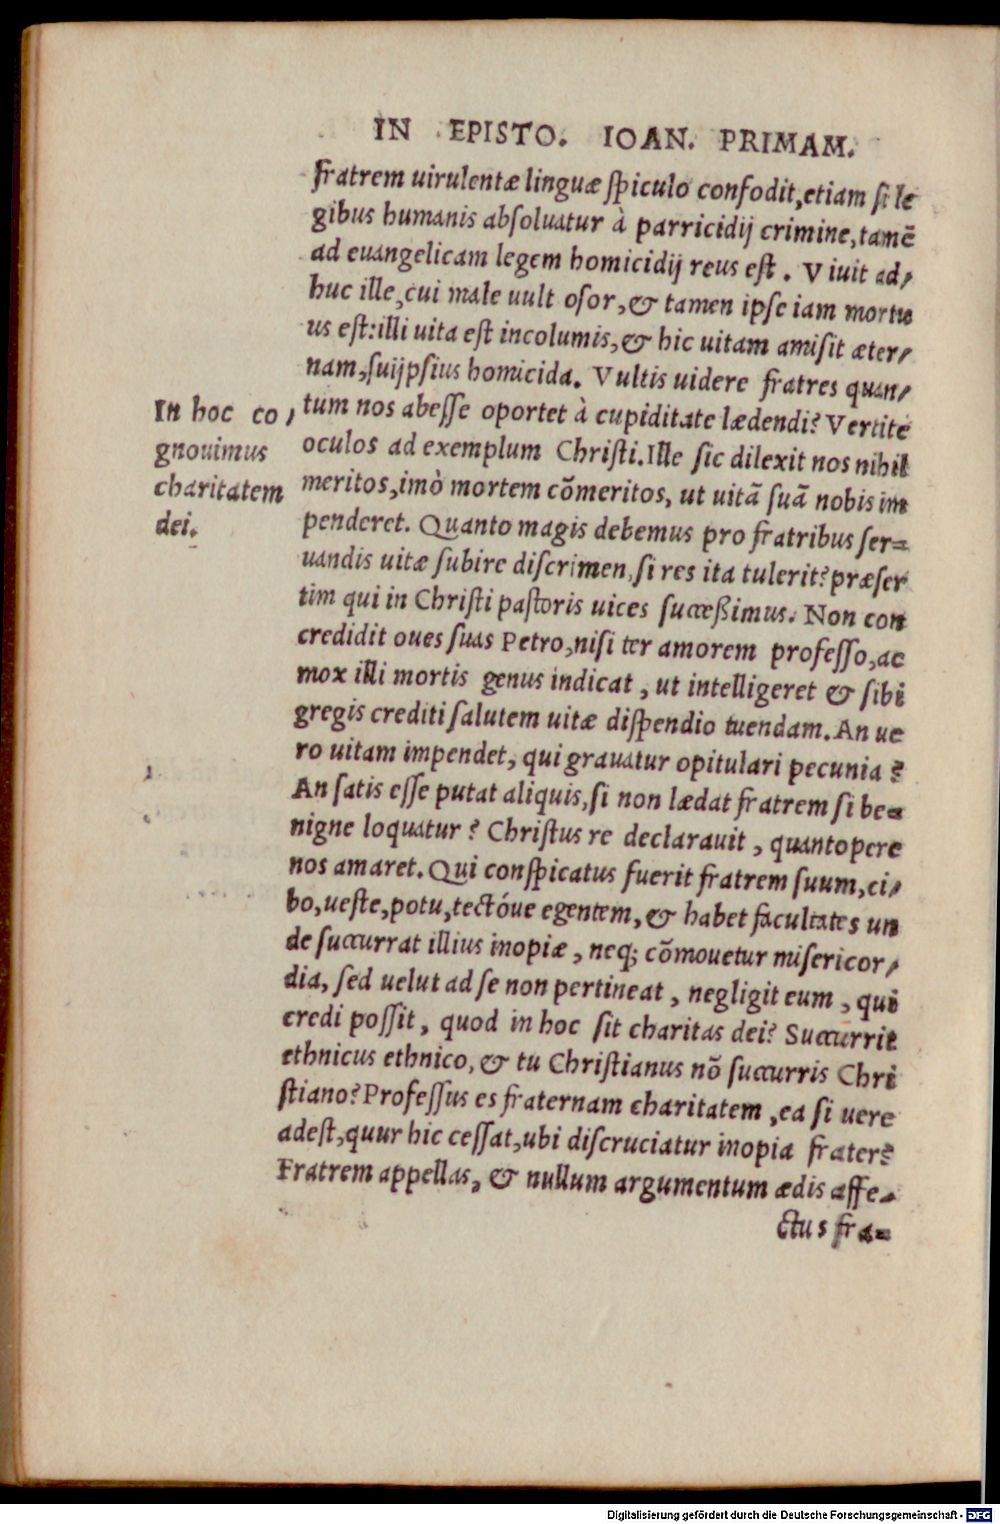 IN EPISTO. IOAN. PRIMAM.
fratrem uirulentæ linguæ ſpiculo confodit, etiam ſi le
gibus humanis abſoluatur à parricidij crimine, tamē
ad euangelicam legem homicidij reus eſt. Viuit ad,
huc ille, cui male uult oſor, & tamen ipſe iam mortu
us eſt: illi uita eſt incolumis, & hic uitam amiſit æter,
nam, ſuijpſius homicida. Vultis uidere fratres quan,
tum nos abeſſe oportet à cupiditate lædendi? Vertite
oculos ad exemplum Chriſti. Ille ſic dilexit nos nihil
meritos, imò mortem cōmeritos, ut uitā ſuā nobis im
penderet. Quanto magis debemus pro fratribus ſer=
uandis uitæ ſubire diſcrimen, ſi res ita tulerit? præſer
tim qui in Chriſti paſtoris uices ſucceßimus. Non con
credidit oues ſuas Petro, niſi ter amorem profeſſo, ac
mox illi mortis genus indicat, ut intelligeret & ſibi
gregis crediti ſalutem uitæ diſpendio tuendam. An ue
ro uitam impendet, qui grauatur opitulari pecunia?
An ſatis eſſe putat aliquis, ſi non lædat fratrem ſi be=
nigne loquatur? Chriſtus re declarauit, quantopere
nos amaret. Qui conſpicatus fuerit fratrem ſuum, ci,
bo, ueſte, potu, tectóue egentem, & habet facultates un
de ſuccurrat illius inopiæ, neq; cōmouetur miſericor,
dia, ſed uelut ad ſe non pertineat, negligit eum, qui
credi poſſit, quod in hoc ſit charitas dei? Succurrit
ethnicus ethnico, & tu Chriſtianus nō ſuccurris Chri
ſtiano? Profeſſus es fraternam charitatem, ea ſi uere
adeſt, quur hic ceſſat, ubi diſcruciatur inopia frater?
Fratrem appellas, & nullum argumentum ædis affe,
ctus fra=
In hoc co,
gnouimus
charitatem
dei.
Digitalisierung gefördert durch die Deutsche Forschungsgemeinschaft - DFG